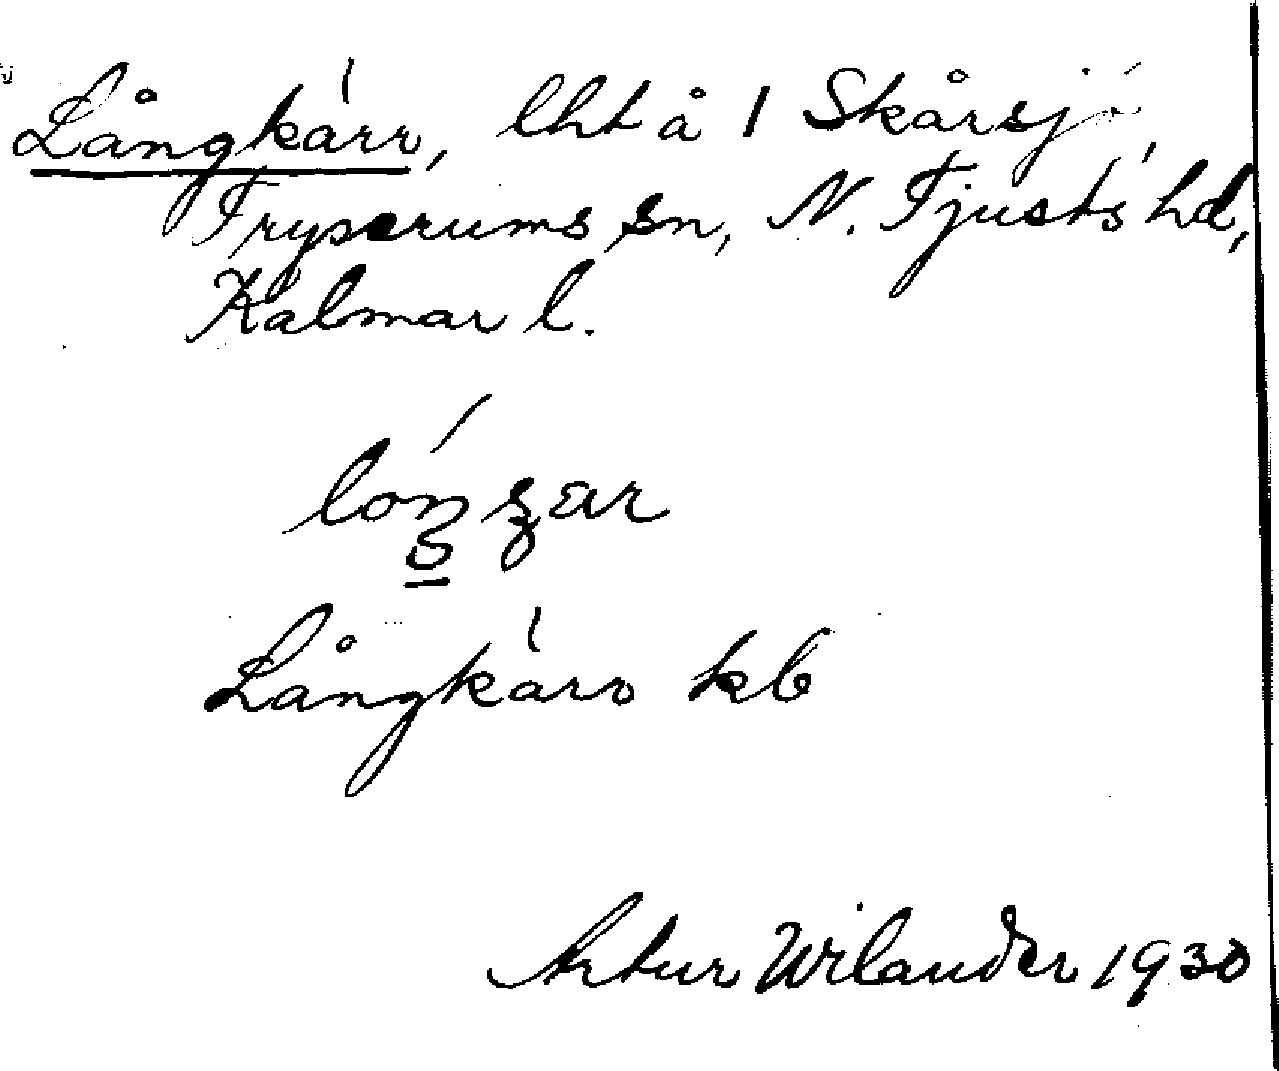 Långkärr, lht å 1 Skårsjö
Tryserums sn, N. Tjusts hd,
Kalmar l.
Långkärr kb
Artur Wilander 1930